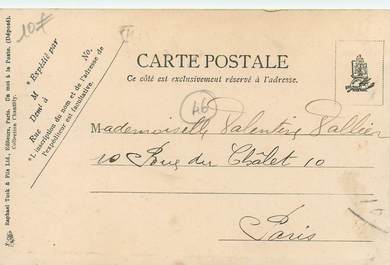 10F
CARTE POSTALE
Ce côté est exclusivement réservé à l'adresse.
* Expédié par
M
Dem^t à
Rue No.
*L'inscription du nom et de l'adresse de
l'expéditeur est facultative.
Raphael Tuck & Fils Ltd., Editeurs, Paris. Un mot à la Poste. (Déposé).
Collection Chantilly.
46
Mademoiselle Valentine Vallier
10 Rue du Châlet 10
Paris